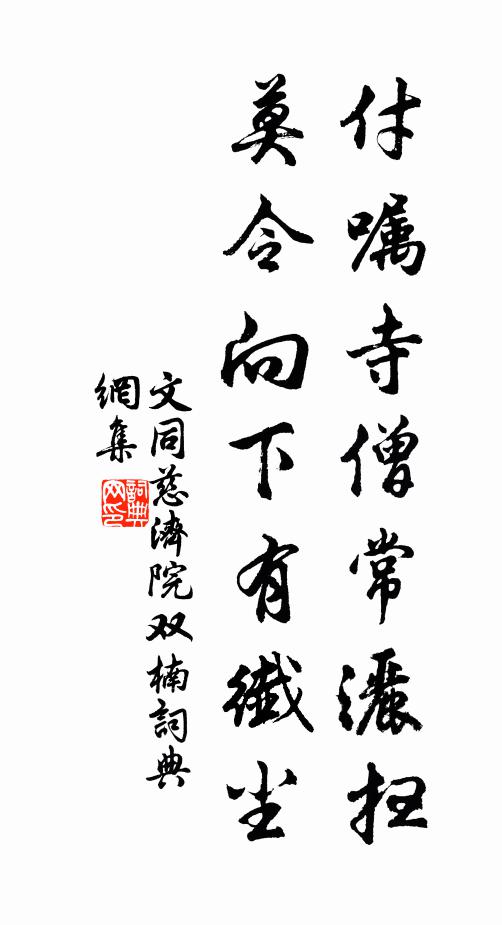 付嘱寺僧常灑扫
莫令向下有纖尘
文同慈濟院双楠詞典
網集
詞典网印